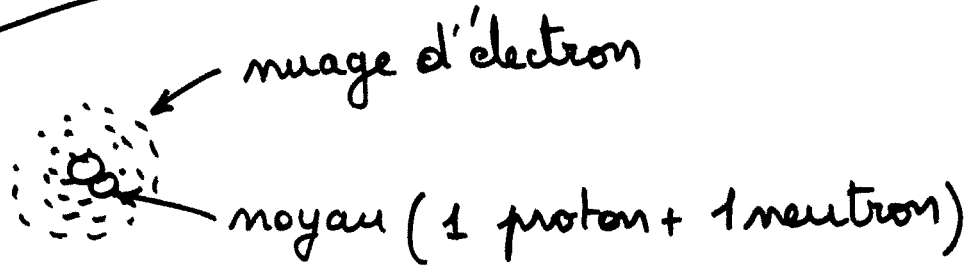 nuage d'électron
noyau (1 proton + 1 neutron)